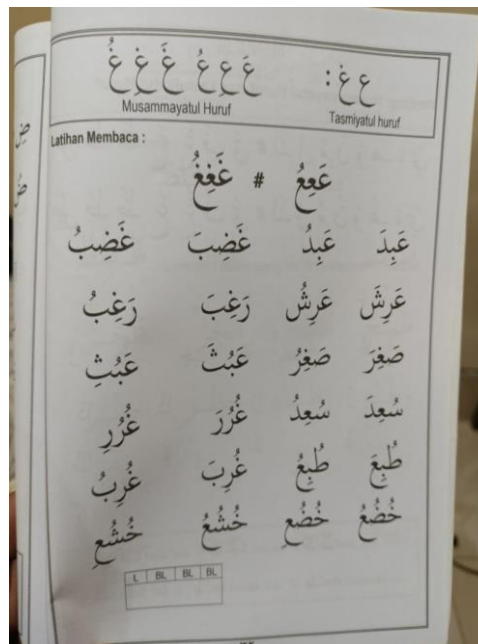 ع غ : عَ عِ عُ غَ غِ غُ
Tasmiyatul huruf Musammayatul Huruf
Latihan Membaca :
عَعِعُ # غَغِغُ
عَبِدَ عَبِدُ غَضِبَ غَضِبُ
عَرِشَ عَرِشُ رَغِبَ رَغِبُ
صَغِرَ صَغِرُ عَبُثَ عَبُثِ
سُعِدَ سُعِدُ غُرُرَ غُرُرِ
طُبِعَ طُبِعُ غُرِبَ غُرِبُ
خُضُعُ خُضُعِ خُشُعُ خُشُعِ
L BL BL BL